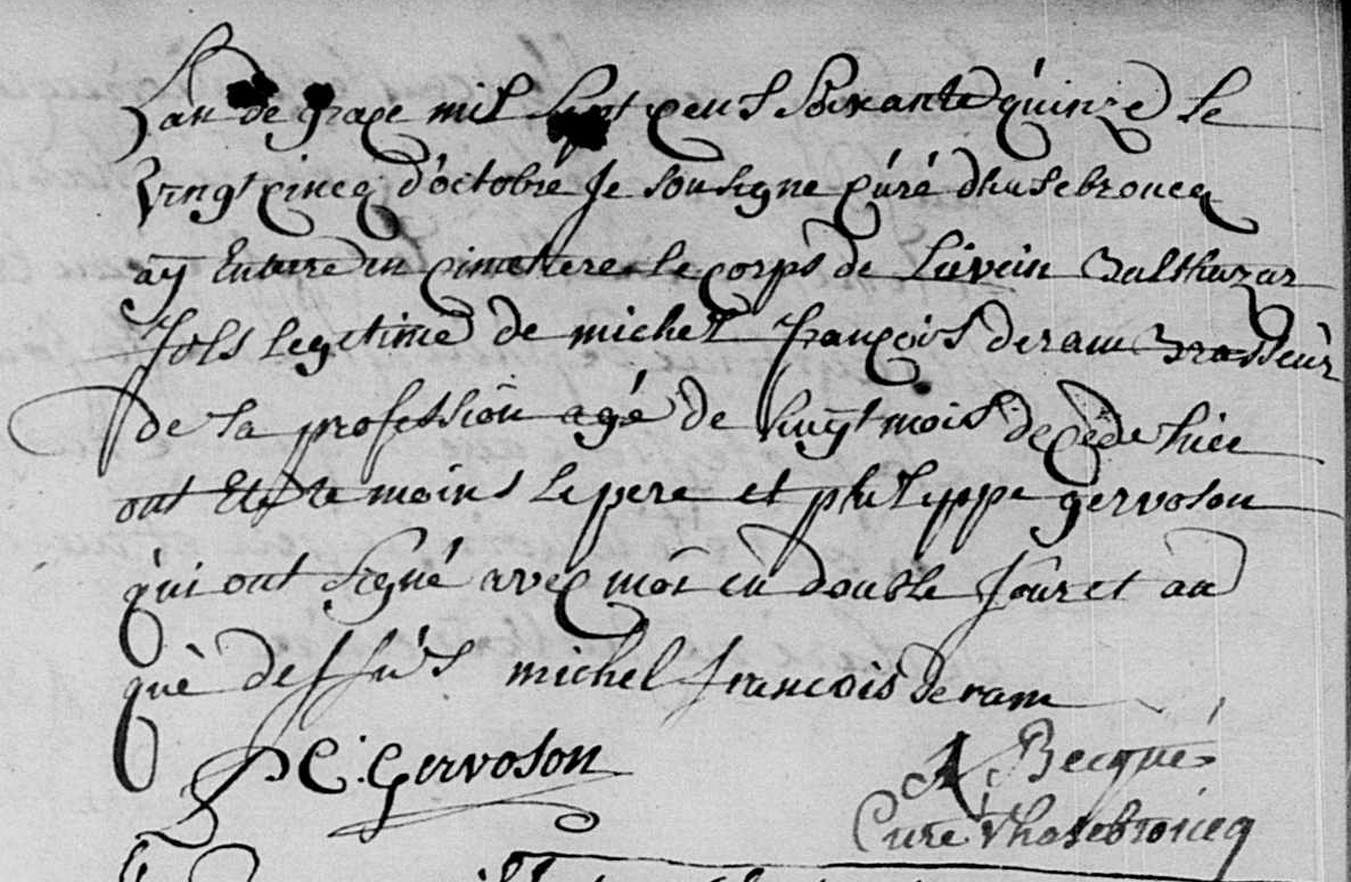 Lan de grace mil sept cens soixante quinze le
vingt cincq d'octobre Je sousigne curé dhasebroucq
ay enterré en cimetiere le corps de Lievein Balthazar
fils legetime de michel françois deram Brasseur
de sa profession agé de huyt mois decede hier
ont eté temoins le pere et philippe gervoson
qui ont signé avec moi en double Jour et an
que dessus michel francois deram
P C: Gervoson A Becqué
Cure d'hasebroucq